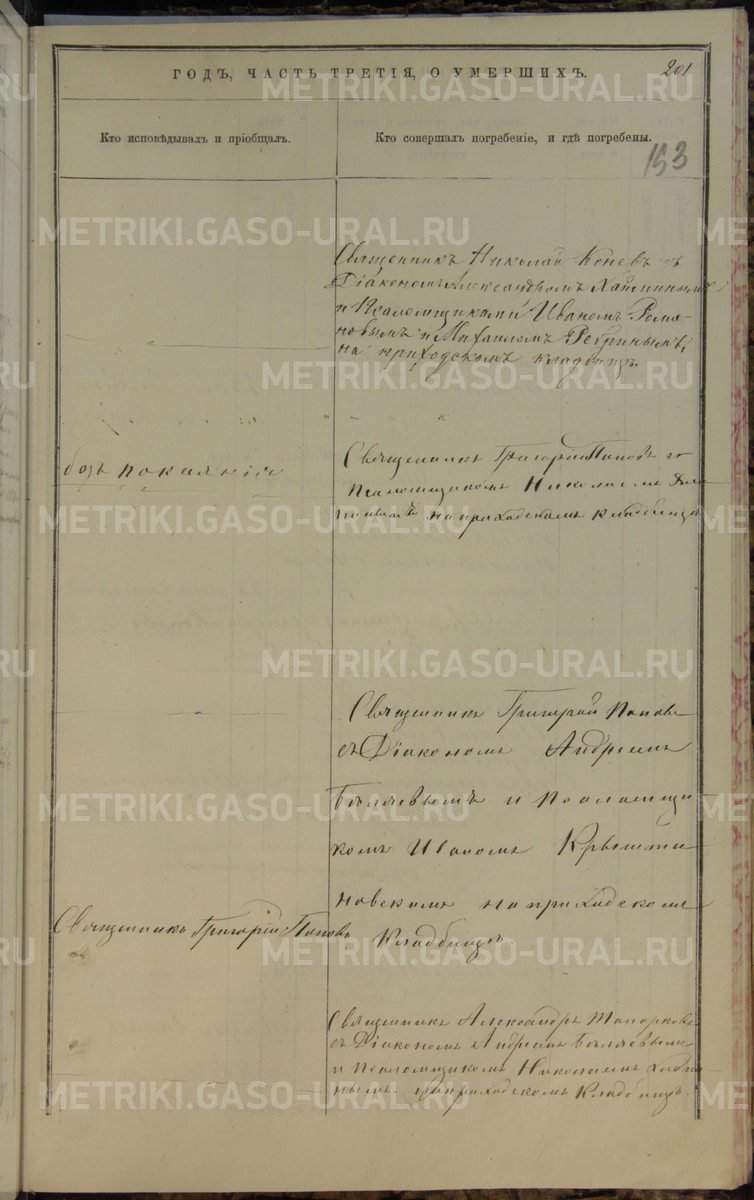 ГОДЪ, ЧАСТЬ ТРЕТІЯ, О УМЕРШИХЪ.
201
Кто исповѣдывалъ и пріобщалъ.
Кто совершалъ погребеніе, и гдѣ погребены.
153
Священникъ Николай Коневъ съ
Діакономъ Александромъ
и Псаломщиками Иваномъ Рома-
новымъ и Михаиломъ
на приходскомъ кладбищѣ.
безъ покаянія
Священникъ Григорій Поповъ со
Псаломщикомъ Николаемъ
на приходскомъ кладбищѣ
Священникъ Григорій Поповъ
съ Діакономъ Андреемъ
Бѣляевымъ и Псаломщи
комъ Иваномъ Крышти
новскимъ на приходскомъ
Кладбищѣ
Священникъ Григорій Поповъ
Священникъ Александръ Топорковъ
съ Діакономъ Андреемъ Бѣляевымъ
и Псаломщикомъ Николаемъ
нымъ. на приходскомъ Кладбищѣ.
METRIKI.GASO-URAL.RU